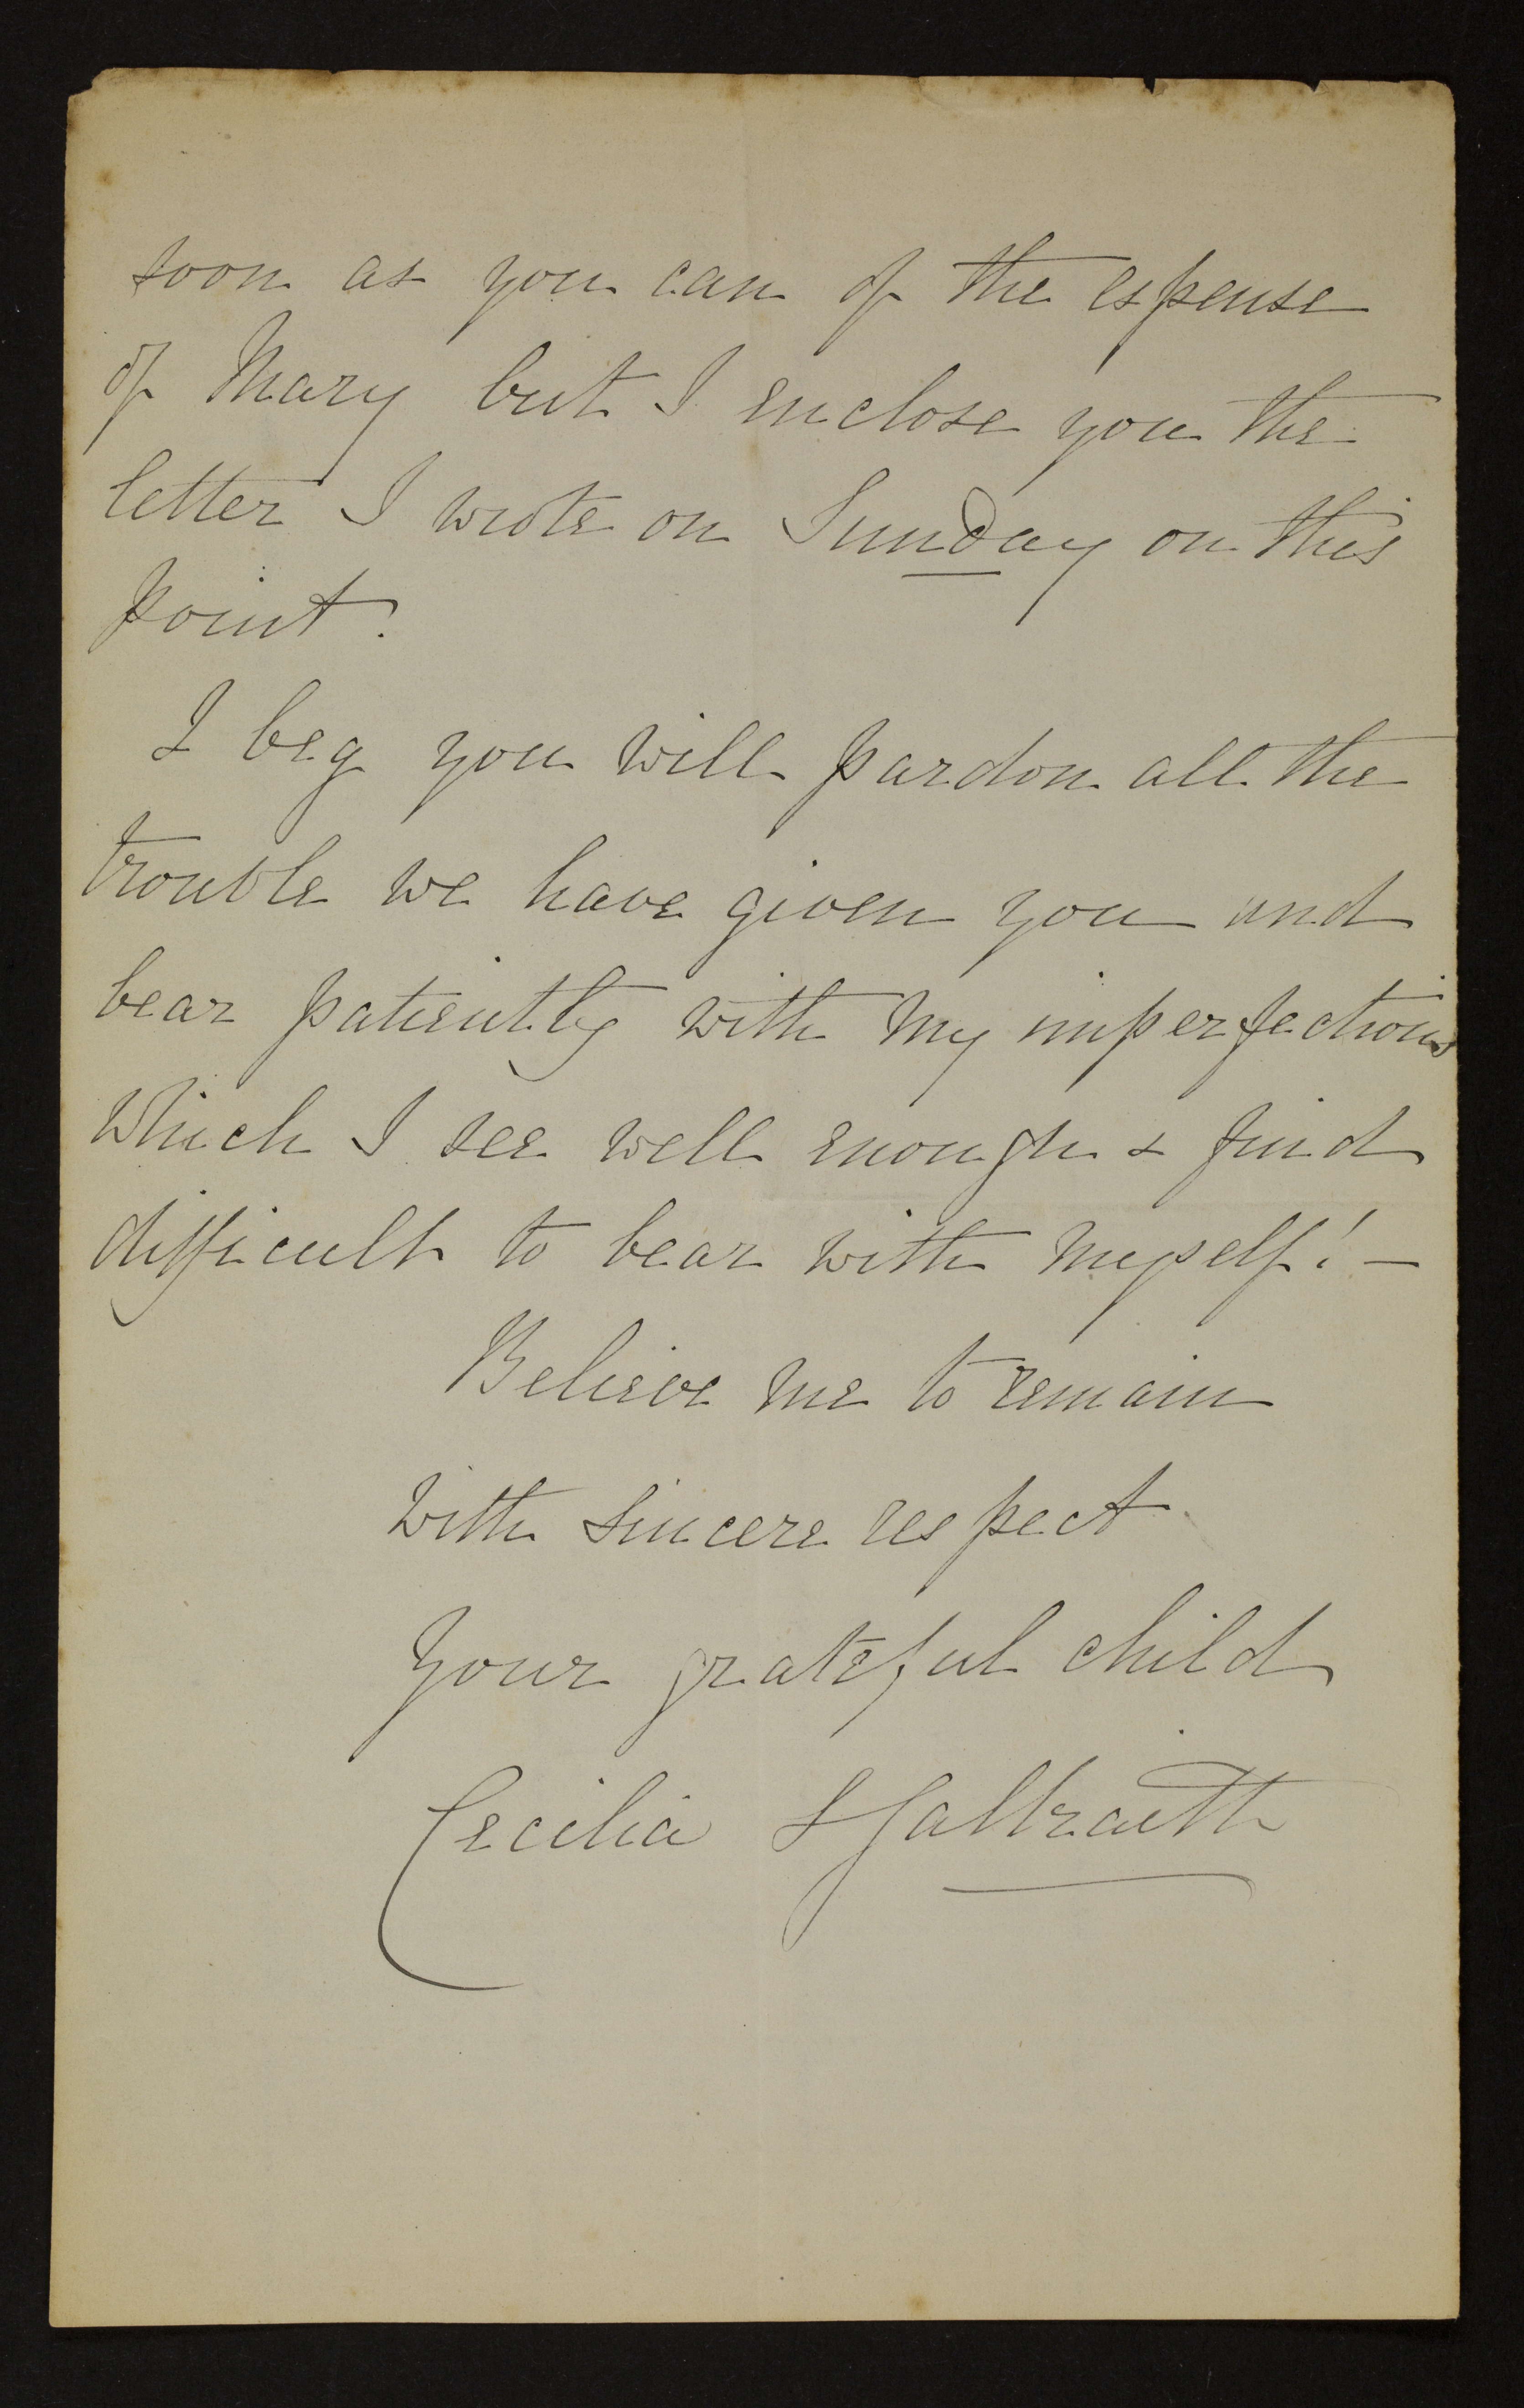 soon as you can of the espense
of Mary but I enclose you the
letter I wrote on Sunday on this
point.
I beg you will pardon all the
trouble we have given you and
bear patiently with my imperfections
which I see well enough & find
difficult to bear with myself! —
Believe me to remain
with sincere respect
Your grateful child
Cecilia Galbraith